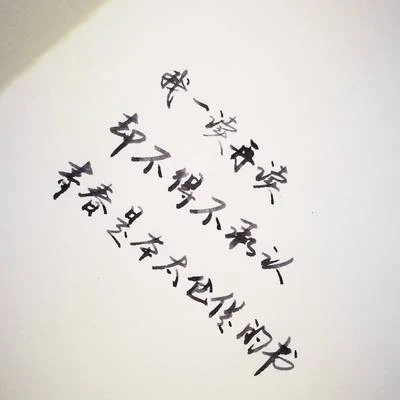 我一读再读
却不得不承认
青春是本太仓促的书